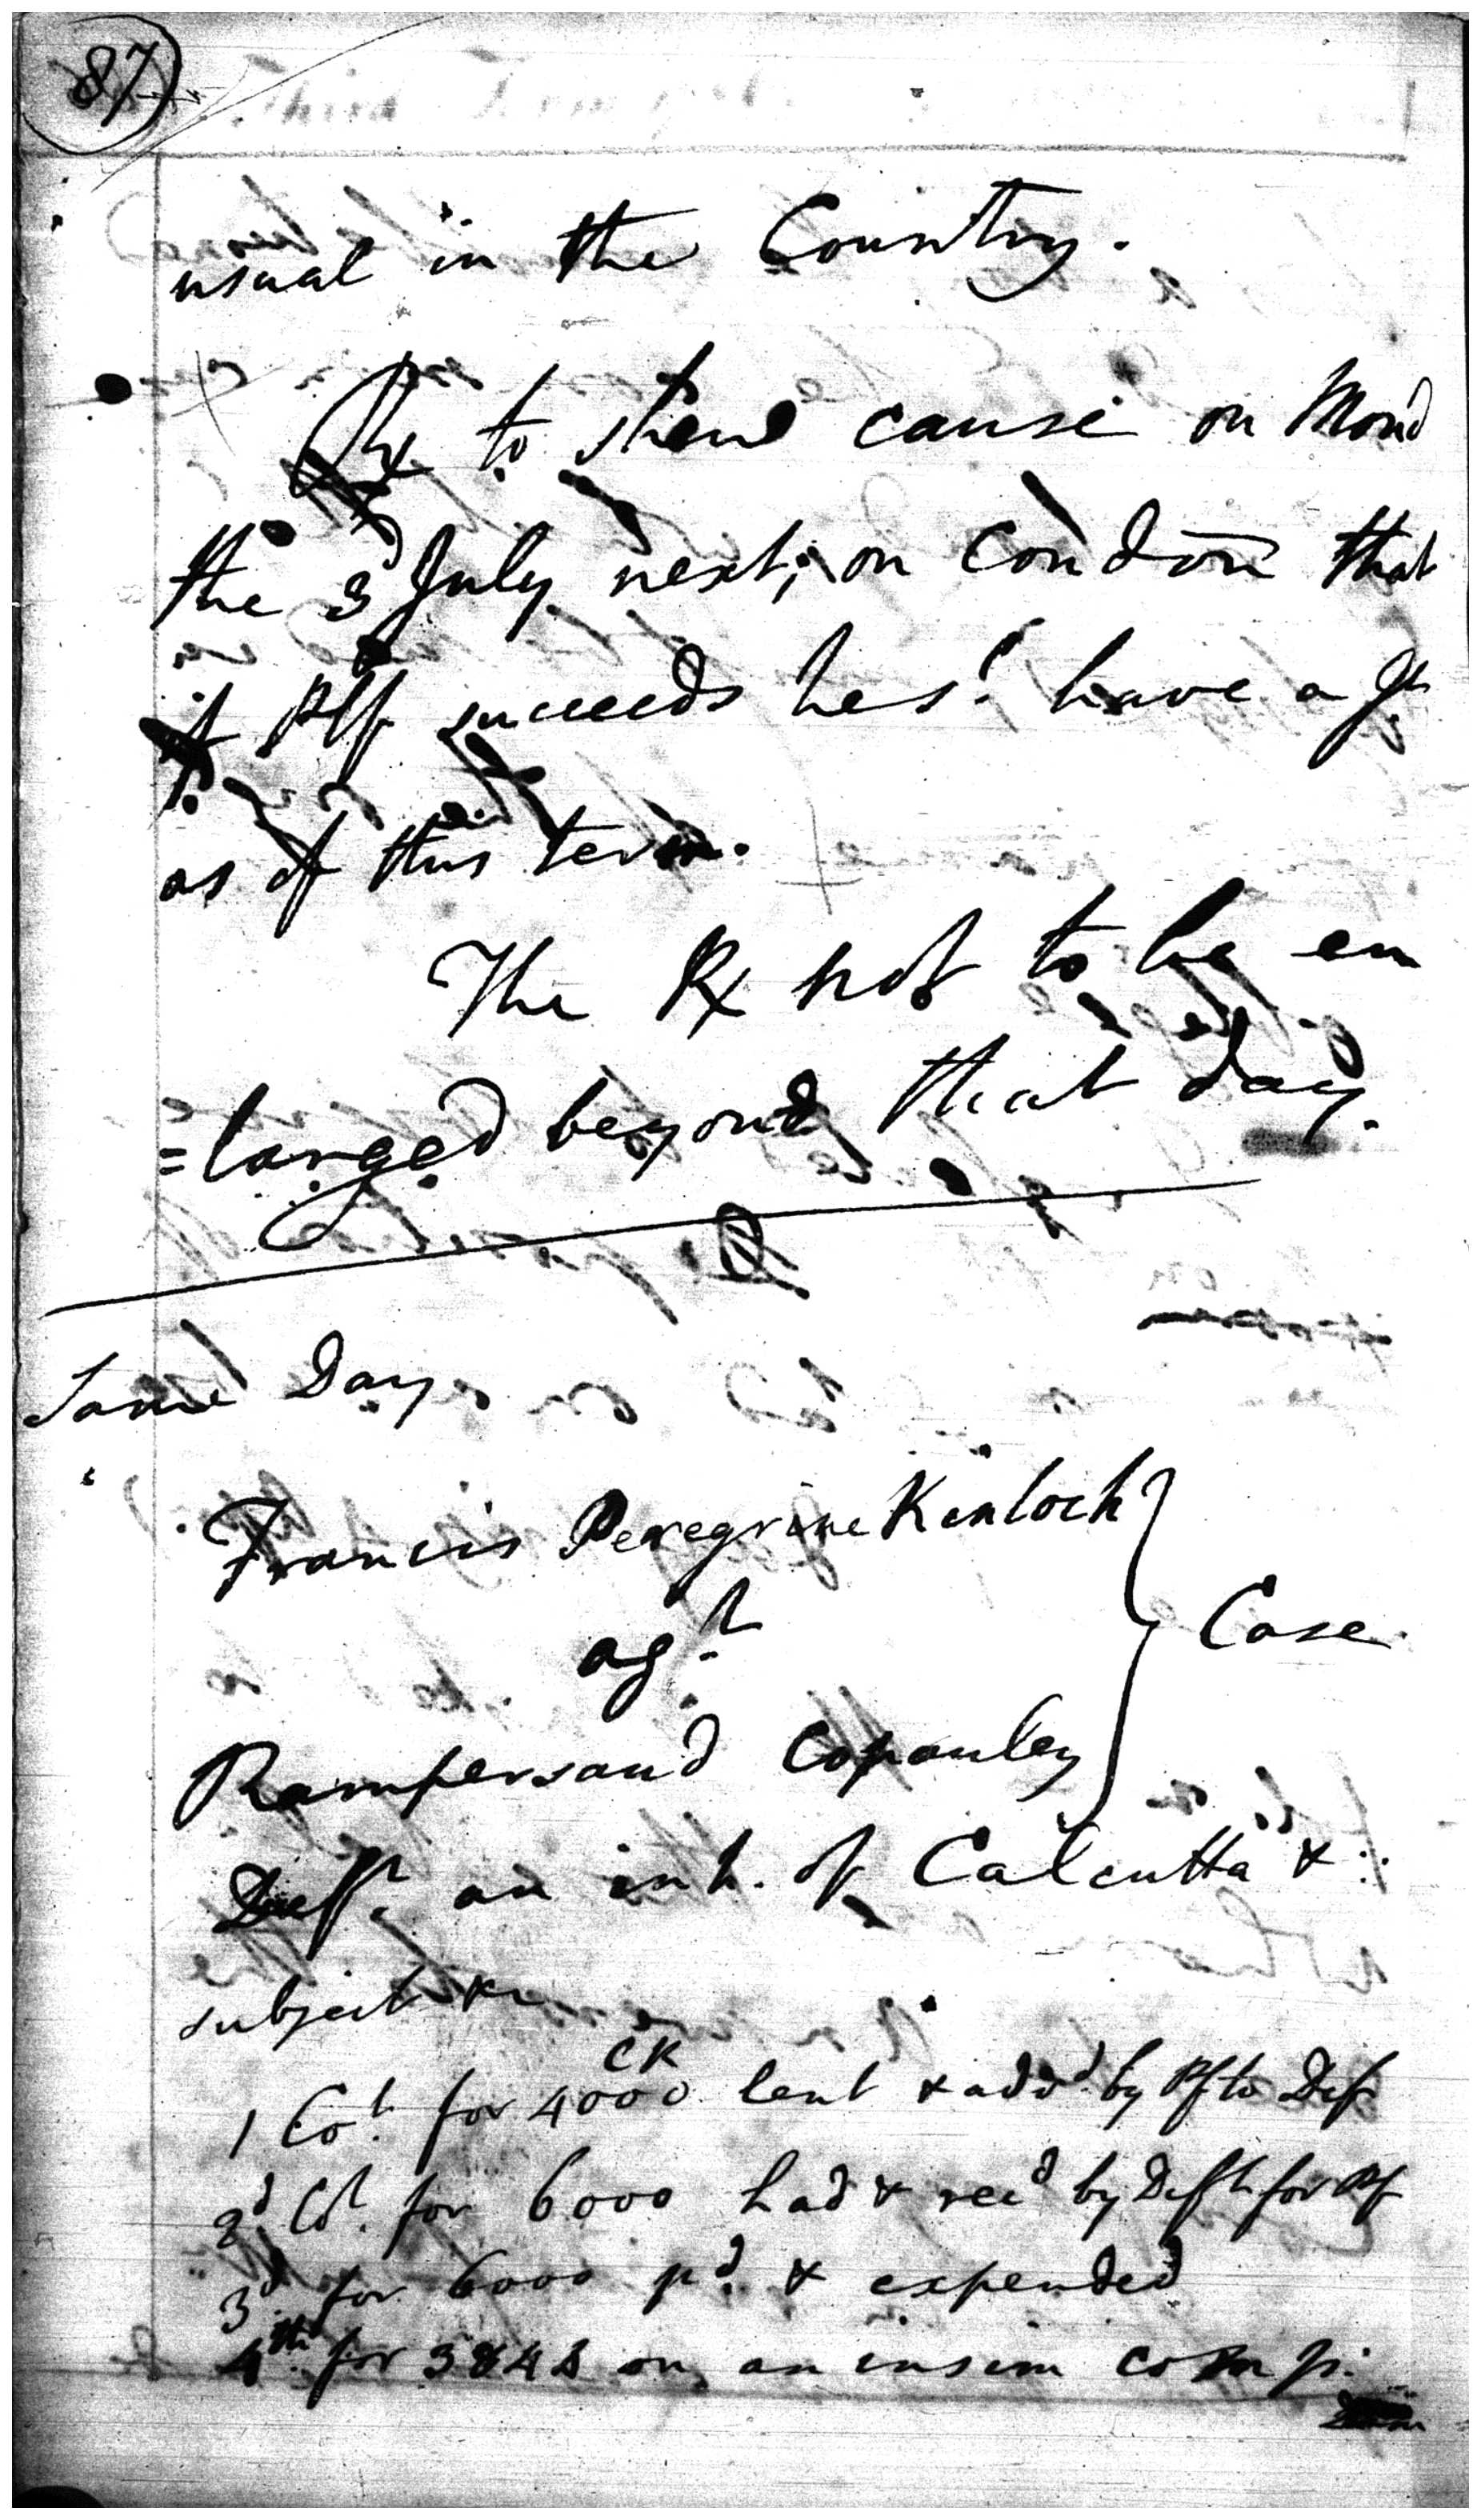 87
usual in the Country.
Rx to shew cause on Mond
the 3d July next, on Condōn that
if Plf succeeds he sd. have a Jt
as of this term.
The Rx not to be en
=larged beyond that day.
Same Day
Francis Peregrine Kinloch
agt
Case
Rampersaud Copauley
Deft. an inh. of Calcutta &
subject &c
CK
1 Cot. for 4000 lent & advd. by Plf to Def
2d Ct. for 6000 had & recd by Deft for Plf
3d for 6000 pd. & expended
4th for 3848 on an insim comp.